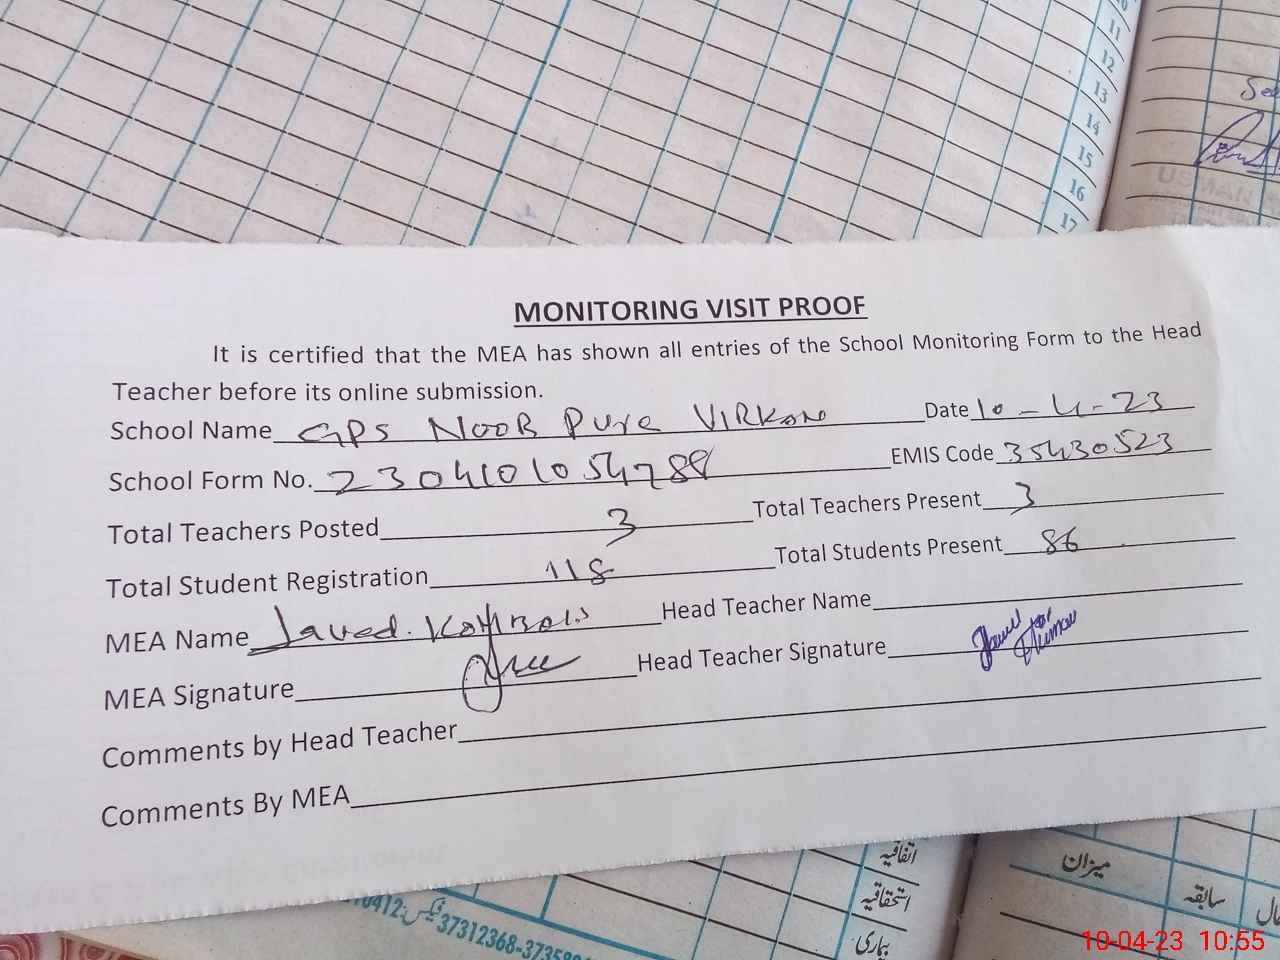 11
12
13
14
15
16
17
USMAN
MONITORING VISIT PROOF
It is certified that the MEA has shown all entries of the School Monitoring Form to the Head
Teacher before its online submission.
School Name GPS NOOR Pura VIRKAN Date 10-4-23
School Form No. 2304101054788 EMIS Code 35430523
Total Teachers Posted 3 Total Teachers Present 3
Total Student Registration 118 Total Students Present 86
MEA Name Javed. Head Teacher Name
MEA Signature Head Teacher Signature
Comments by Head Teacher
Comments By MEA
اتفاقیہ
استحقاقیہ
بیماری
میزان
سابقہ
فیکس: 37312368-3735
10-04-23 10:55